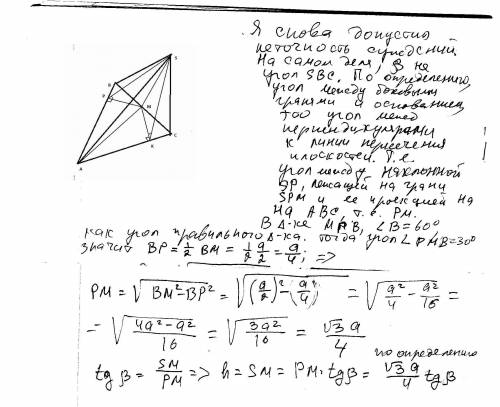 Я снова допустил
неточность суждений.
На самом деле, β не
угол SBC. По определению,
угол между боковыми
гранями и основанием
это угол между
перпендикулярами
к линии пересечения
плоскостей. Т.е.
угол между наклонной
SP, лежащей на грани
SPM и ее проекцией на
на ABC, т.е. PM.
В Δ-ке MPB, ∠B=60°
как угол правильного Δ-ка. тогда угол ∠PMB=30°
значит BP=1/2 BM = 1/2 a/2 = a/4; =>
PM = √(BM²-BP²) = √((a/2)²-(a/4)²) = √(a²/4 - a²/16) =
= √((4a²-a²)/16) = √(3a²/16) = √3a/4
по определению
tg β = SM/PM => h = SM = PM·tgβ = √3a/4 tgβ
S
B
P
M
C
K
A